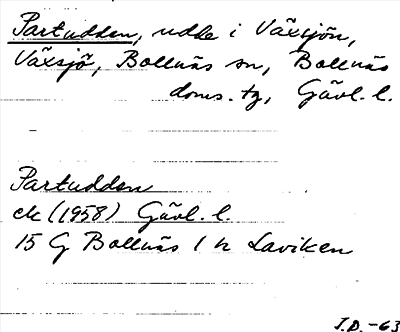 Partudden, udde i Växsjön,
Växsjö, Bollnäs sn, Bollnäs
doms. tg, Gävl. l.
Partudden
ek (1958) Gävl. l.
15 G Bollnäs 1 h Laviken
I.D. -63